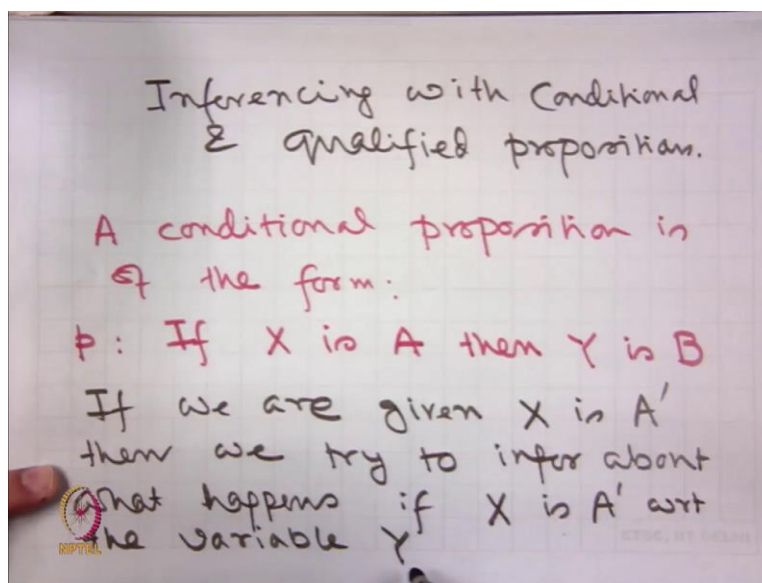 Inferencing with Conditional
& qualified propositions.
A conditional proposition is
of the form:
p: If X is A then Y is B
If we are given X is A'
then we try to infer about
what happens if X is A' wrt
the variable Y
NPTEL
ETSC, IIT DELHI